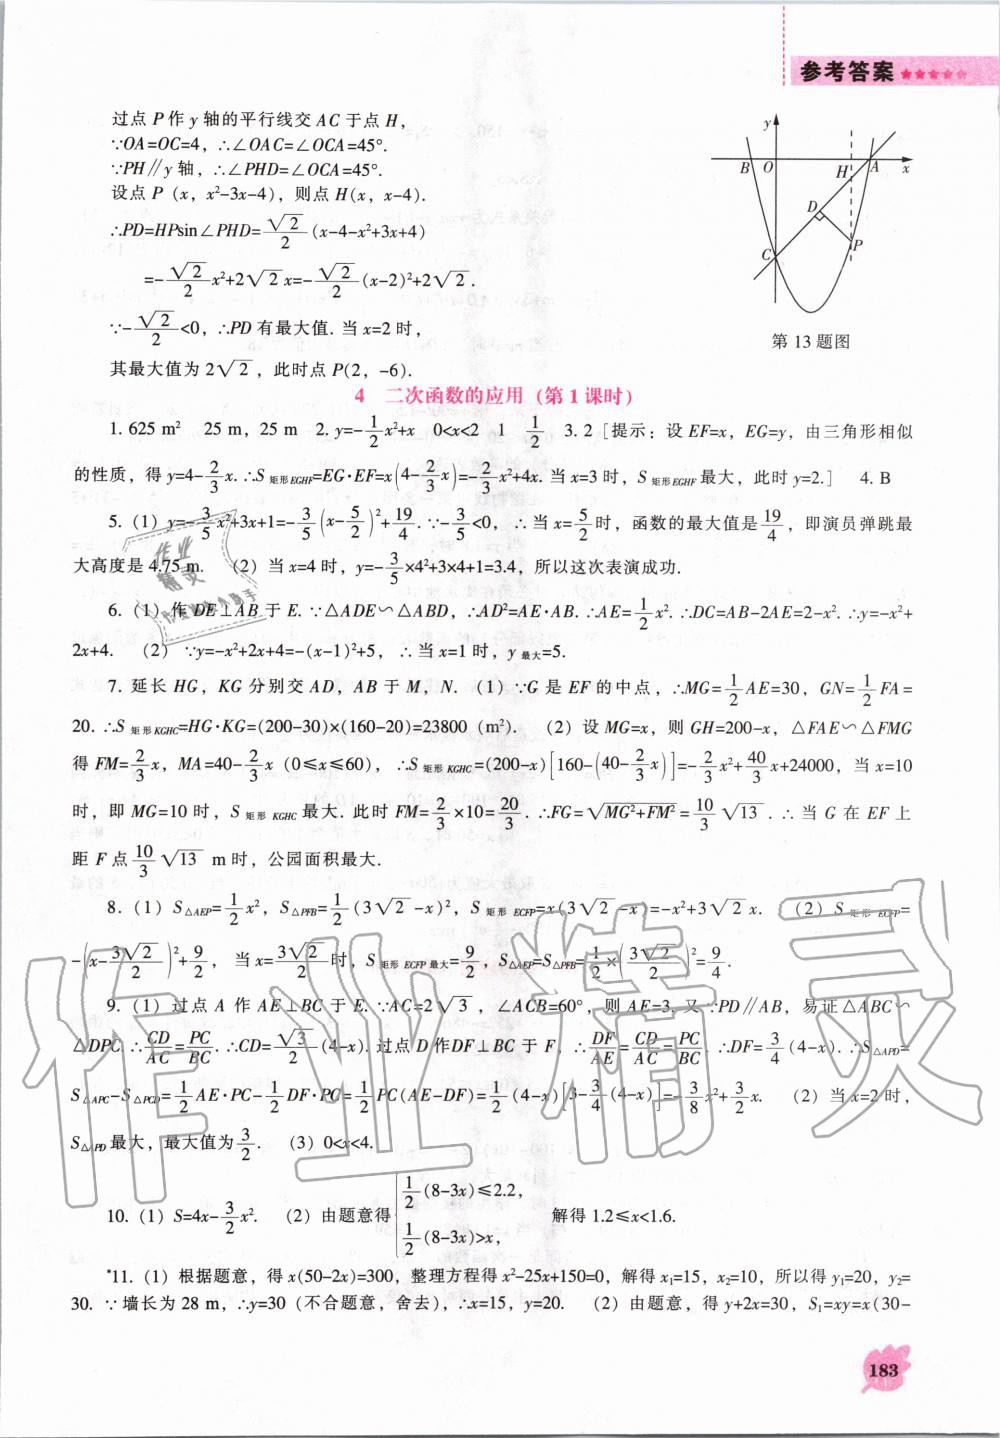 参考答案★★★★★
过点 P 作 y 轴的平行线交 AC 于点 H，
∵OA=OC=4，∴∠OAC=∠OCA=45°.
∵PH∥y 轴，∴∠PHD=∠OCA=45°.
设点 P (x，x²-3x-4)，则点 H(x，x-4).
∴PD=HPsin∠PHD=√2/2(x-4-x²+3x+4)
=-√2/2x²+2√2x=-√2/2(x-2)²+2√2.
∵-√2/2<0，∴PD 有最大值. 当 x=2 时，
其最大值为 2√2，此时点 P(2，-6).
y
B O H A x
D
P
C
第 13 题图
4 二次函数的应用（第 1 课时）
1. 625 m² 25 m，25 m 2. y=-1/2x²+x 0<x<2 1 1/2 3. 2 [提示：设 EF=x，EG=y，由三角形相似
的性质，得 y=4-2/3x. ∴S 矩形 EGHF=EG·EF=x(4-2/3x)=-2/3x²+4x. 当 x=3 时，S 矩形 EGHF 最大，此时 y=2.] 4. B
5. (1) y=-3/5x²+3x+1=-3/5(x-5/2)²+19/4. ∵-3/5<0，∴当 x=5/2时，函数的最大值是19/4，即演员弹跳最
大高度是 4.75 m. (2) 当 x=4 时，y=-3/5×4²+3×4+1=3.4，所以这次表演成功.
6. (1) 作 DE⊥AB 于 E. ∵△ADE∽△ABD，∴AD²=AE·AB. ∴AE=1/2x². ∴DC=AB-2AE=2-x². ∴y=-x²+
2x+4. (2) ∵y=-x²+2x+4=-(x-1)²+5，∴当 x=1 时，y 最大=5.
7. 延长 HG，KG 分别交 AD，AB 于 M，N. (1) ∵G 是 EF 的中点，∴MG=1/2AE=30，GN=1/2FA=
20. ∴S 矩形 KGHC=HG·KG=(200-30)×(160-20)=23800 (m²). (2) 设 MG=x，则 GH=200-x，△FAE∽△FMG
得 FM=2/3x，MA=40-2/3x (0≤x≤60)，∴S 矩形 KGHC=(200-x)[160-(40-2/3x)]=-2/3x²+40/3x+24000，当 x=10
时，即 MG=10 时，S 矩形 KGHC 最大. 此时 FM=2/3×10=20/3. ∴FG=√MG²+FM²=10/3√13. ∴当 G 在 EF 上
距 F 点10/3√13 m 时，公园面积最大.
8. (1) S△AEP=1/2x²，S△PFB=1/2(3√2-x)²，S 矩形 ECFP=x(3√2-x)=-x²+3√2x. (2) S 矩形 ECFP=
-(x-3√2/2)²+9/2，当 x=3√2/2时，S 矩形 ECFP 最大=9/2，S△AEP=S△PFB=1/2×(3√2/2)²=9/4.
9. (1) 过点 A 作 AE⊥BC 于 E. ∵AC=2√3，∠ACB=60°，则 AE=3. 又∵PD∥AB，易证△ABC∽
△DPC ∴CD/AC=PC/BC. ∴CD=√3/2(4-x). 过点 D 作 DF⊥BC 于 F，∴DF/AE=CD/AC=PC/BC. ∴DF=3/4(4-x). ∴S△APD=
S△APC-S△PCD=1/2AE·PC-1/2DF·PC=1/2PC(AE-DF)=1/2(4-x)[3-3/4(4-x)]=-3/8x²+3/2x. (2) 当 x=2 时，
S△APD 最大，最大值为3/2. (3) 0<x<4.
10. (1) S=4x-3/2x². (2) 由题意得{1/2(8-3x)≤2.2，1/2(8-3x)>x， 解得 1.2≤x<1.6.
*11. (1) 根据题意，得 x(50-2x)=300，整理方程得 x²-25x+150=0，解得 x₁=15，x₂=10，所以得 y₁=20，y₂=
30. ∵墙长为 28 m，∴y=30（不合题意，舍去），∴x=15，y=20. (2) 由题意，得 y+2x=30，S₁=xy=x(30-
183
作业精灵